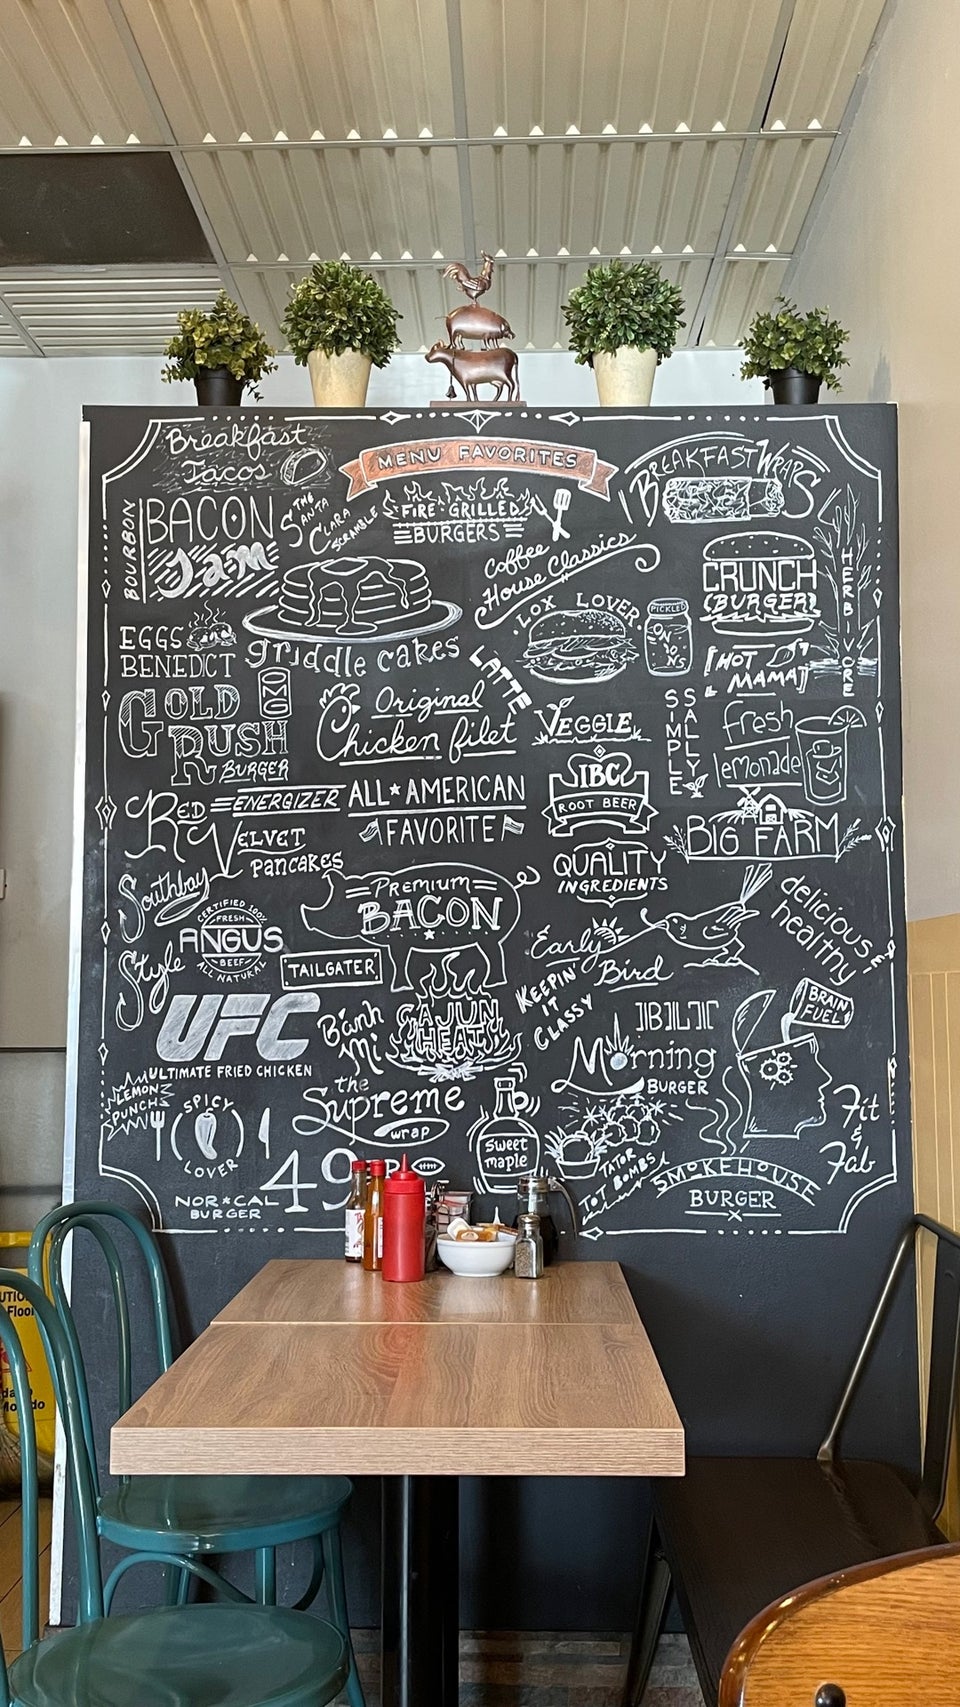 Breakfast
Tacos
MENU FAVORITES
BREAKFAST WRAPS
BOURBON
BACON
Jam
THE
SANTA
CLARA
SCRAMBLE
FIRE-GRILLED
BURGERS
Coffee
House Classics
CRUNCH
BURGER
HERBIVORE
LOX LOVER
PICKLED
ONIONS
EGGS
BENEDICT
griddle cakes
LATTE
HOT
MAMA
GOLD
RUSH
BURGER
OMG
Original
Chicken filet
VEGGIE
SIMPLE
SALLY
fresh
lemonade
IBC
ROOT BEER
RED
VELVET
PANCAKES
ENERGIZER
ALL★AMERICAN
FAVORITE
BIG FARM
QUALITY
INGREDIENTS
Southbay
Style
CERTIFIED 100%
FRESH
ANGUS
BEEF
ALL NATURAL
PREMIUM
BACON
TAILGATER
Early
Bird
delicious
healthy
KEEPIN'
IT
CLASSY
UFC
ULTIMATE FRIED CHICKEN
Bánh
Mi
CAJUN
HEAT
BLT
BRAIN
FUEL
Morning
BURGER
LEMON
PUNCH
SPICY
LOVER
the
Supreme
wrap
Sweet
maple
TATOR
TOT BOMBS
Fit
&
Fab
SMOKEHOUSE
BURGER
NOR★CAL
BURGER
49